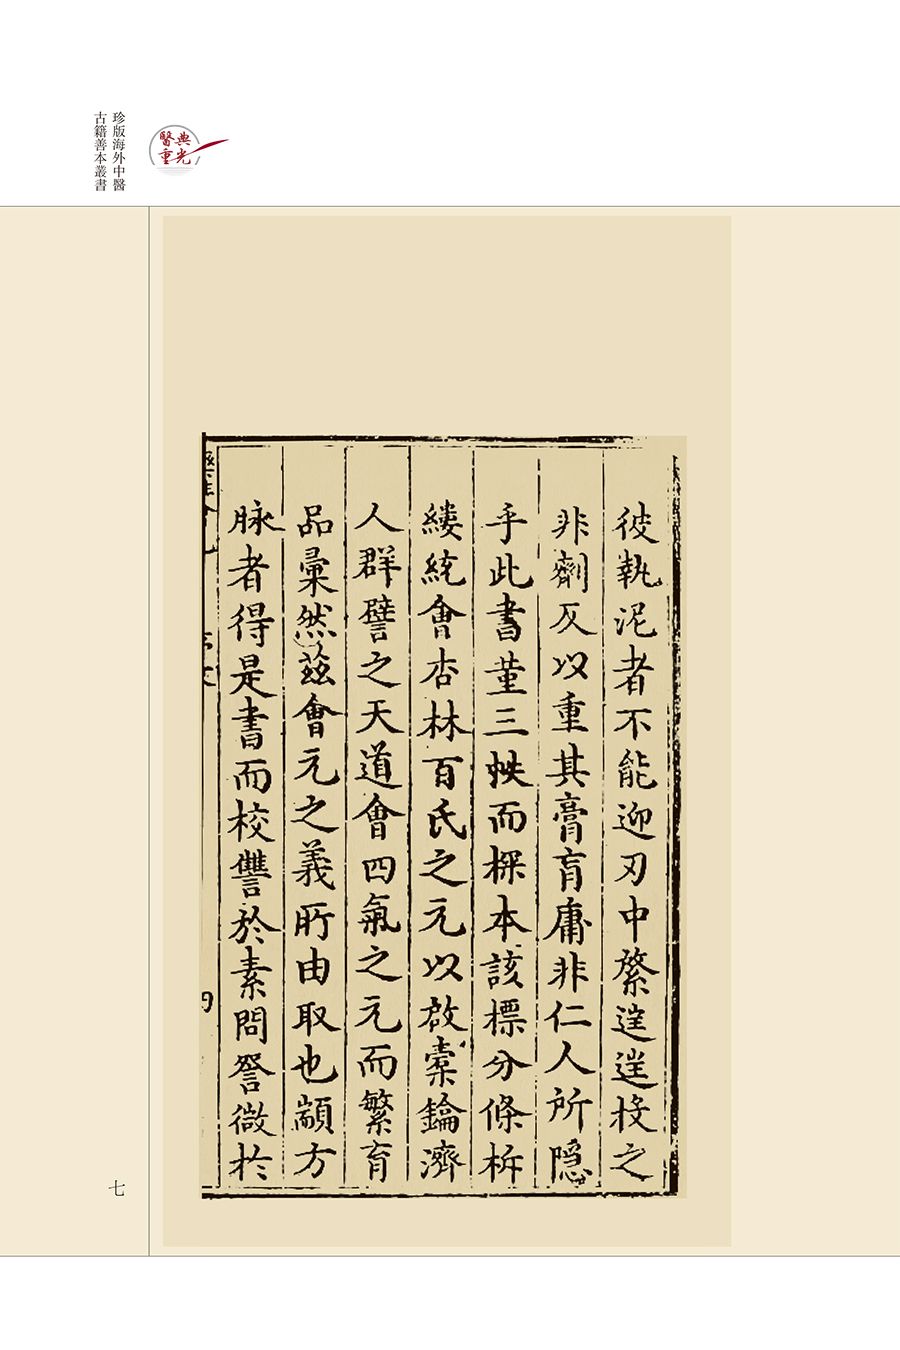 珍版海外中醫
古籍善本叢書
醫典
重光
彼執泥者不能迎刃中綮逞逞投之
非劑反以重其膏肓庸非仁人所隱
乎此書堇三帙而探本該標分條析
縷統會杏林百氏之元以啟橐鑰濟
人群譬之天道會四氣之元而繁育
品彙然茲會元之義所由取也顓方
脉者得是書而校讐於素問詧微於
四
七